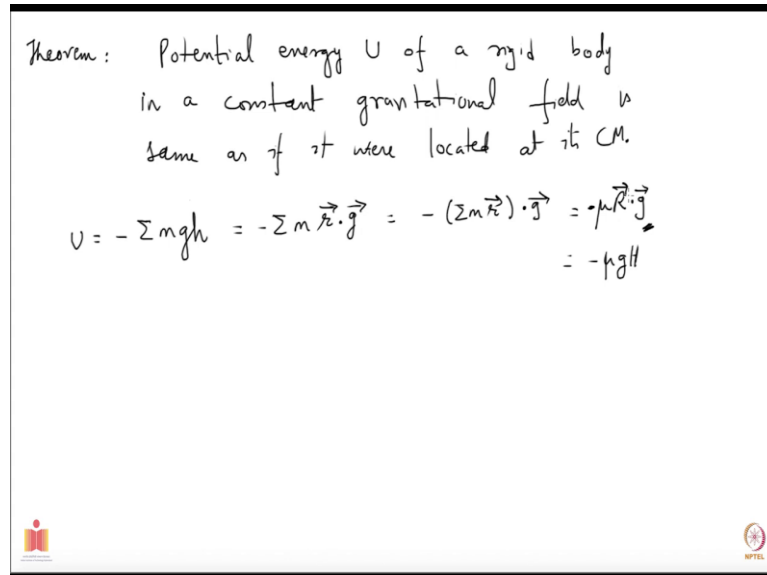 Theorem: Potential energy U of a rigid body
in a constant gravitational field is
same as if it were located at its CM.
U = - Σmgh = -Σm r⃗·g⃗ = -(Σm r⃗)·g⃗ = -μR⃗·g⃗
= -μgH
NPTEL